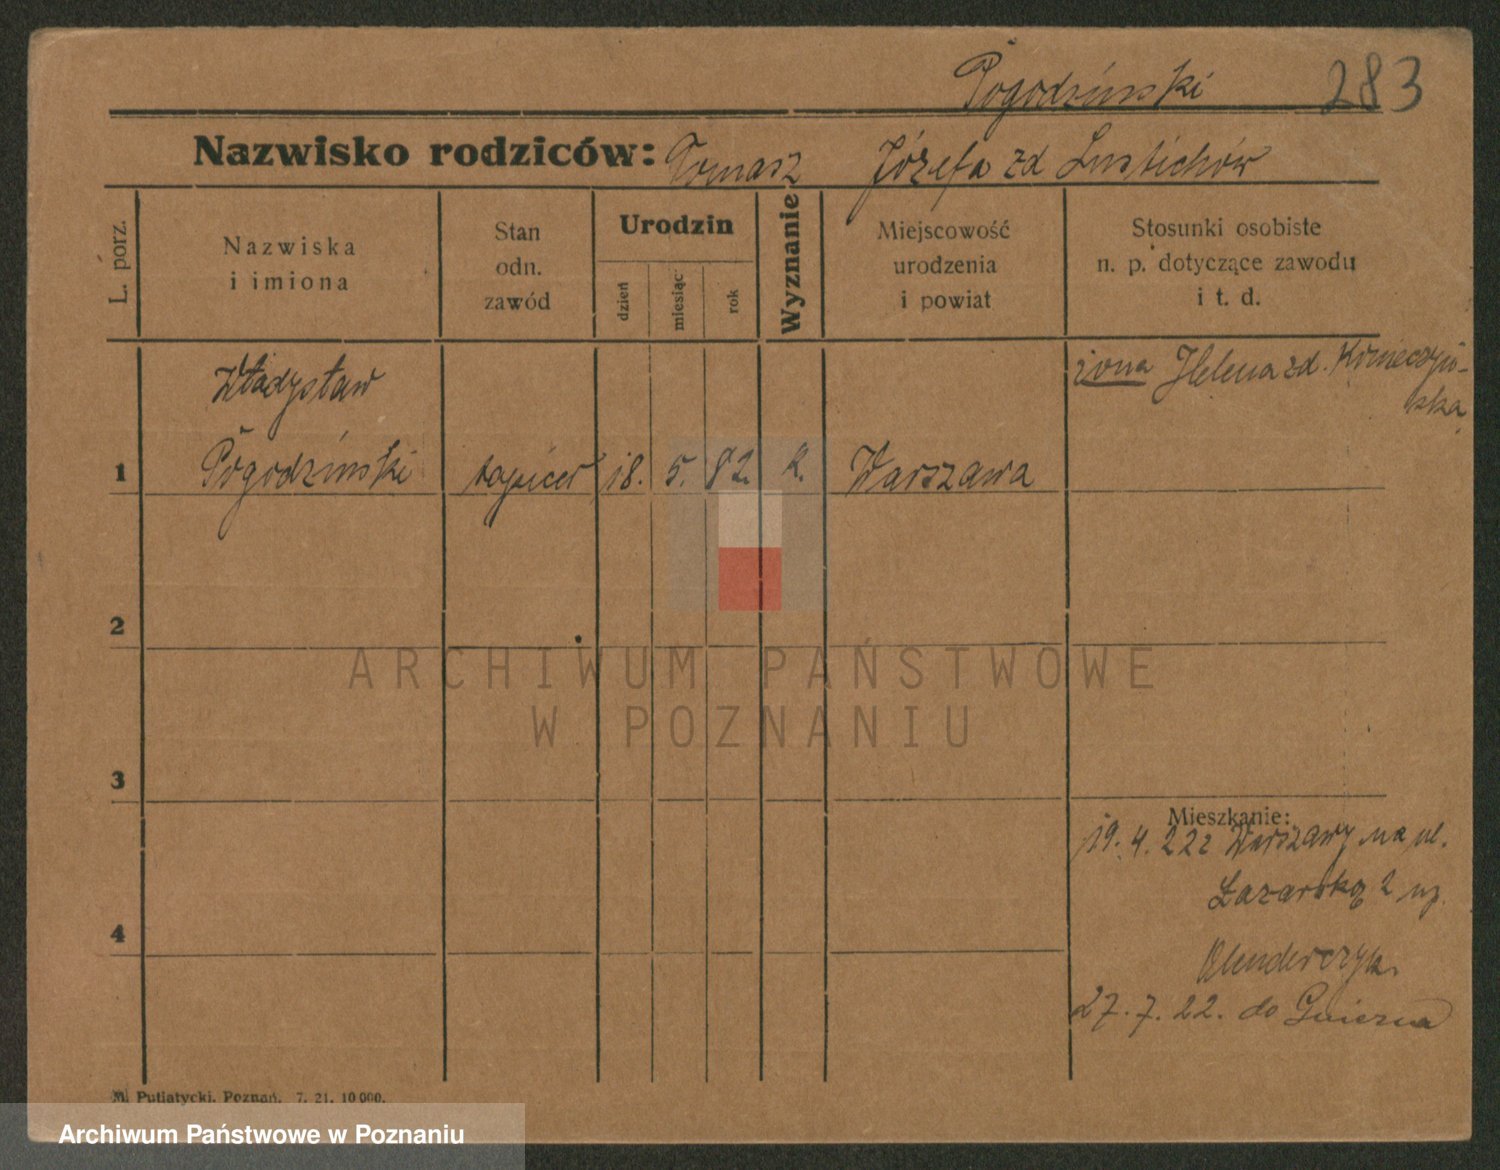 Pogodziński 283
Nazwisko rodziców: Tomasz Józefa zd Lustichów
L. porz.
Nazwiska
i imiona
Stan
odn.
zawód
Urodzin
dzień
miesiąc
rok
Wyznanie
Miejscowość
urodzenia
i powiat
Stosunki osobiste
n. p. dotyczące zawodu
i t. d.
żona Helena zd. Konieczyń-
ska
Władysław
1 Pogodziński tapicer 18. 5. 82. k. Warszawa
2
ARCHIWUM PAŃSTWOWE
W POZNANIU
3
Mieszkanie:
19. 4. 22 z Warszawy na ul.
Łazarską 2
4
27. 7. 22. do Gniezna
M. Putiatycki, Poznań. 7. 21. 10 000.
Archiwum Państwowe w Poznaniu